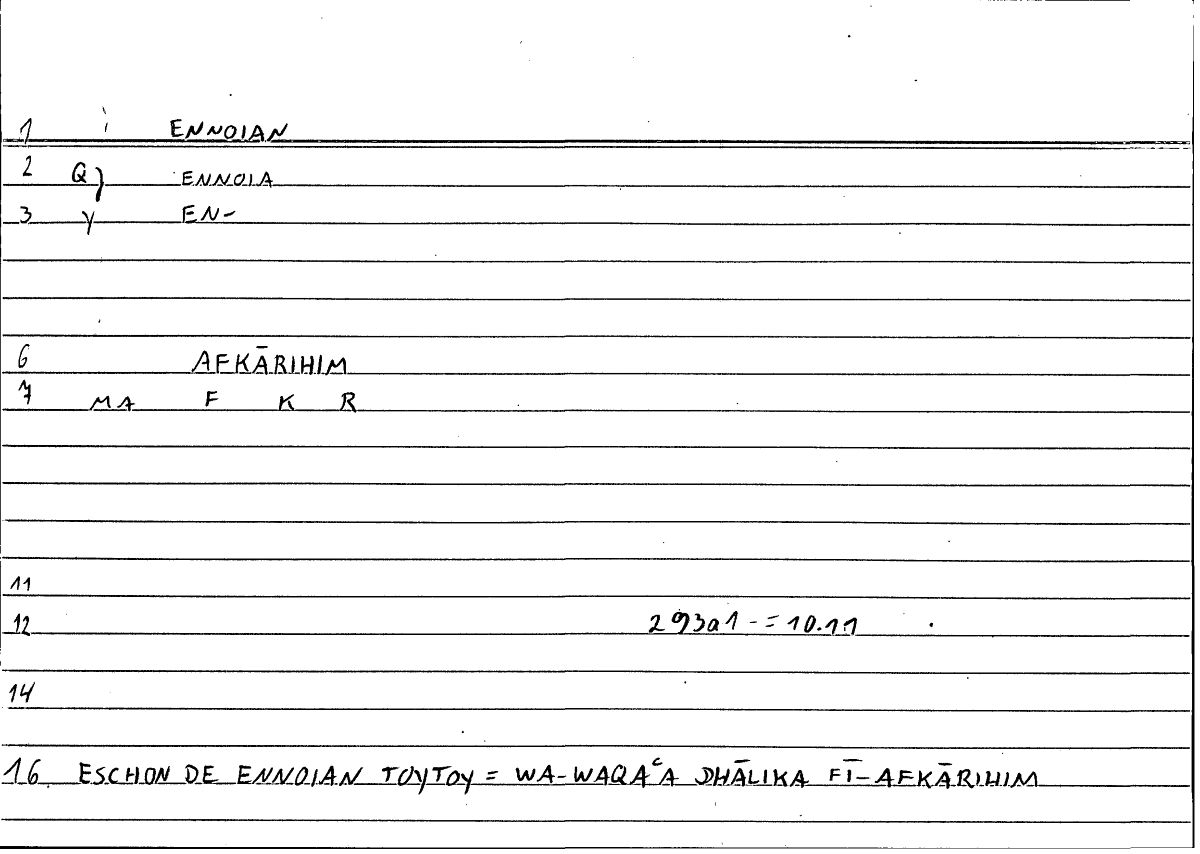 1 ENNOIAN
2 Q} ENNOIA
3 Y EN-
6 AFKĀRIHIM
7 MA F K R
11
12 293a1 - = 10.11
14
16 ESCHON DE ENNOIAN TOYTOY = WA-WAQAʿA DHĀLIKA FĪ-AFKĀRIHIM